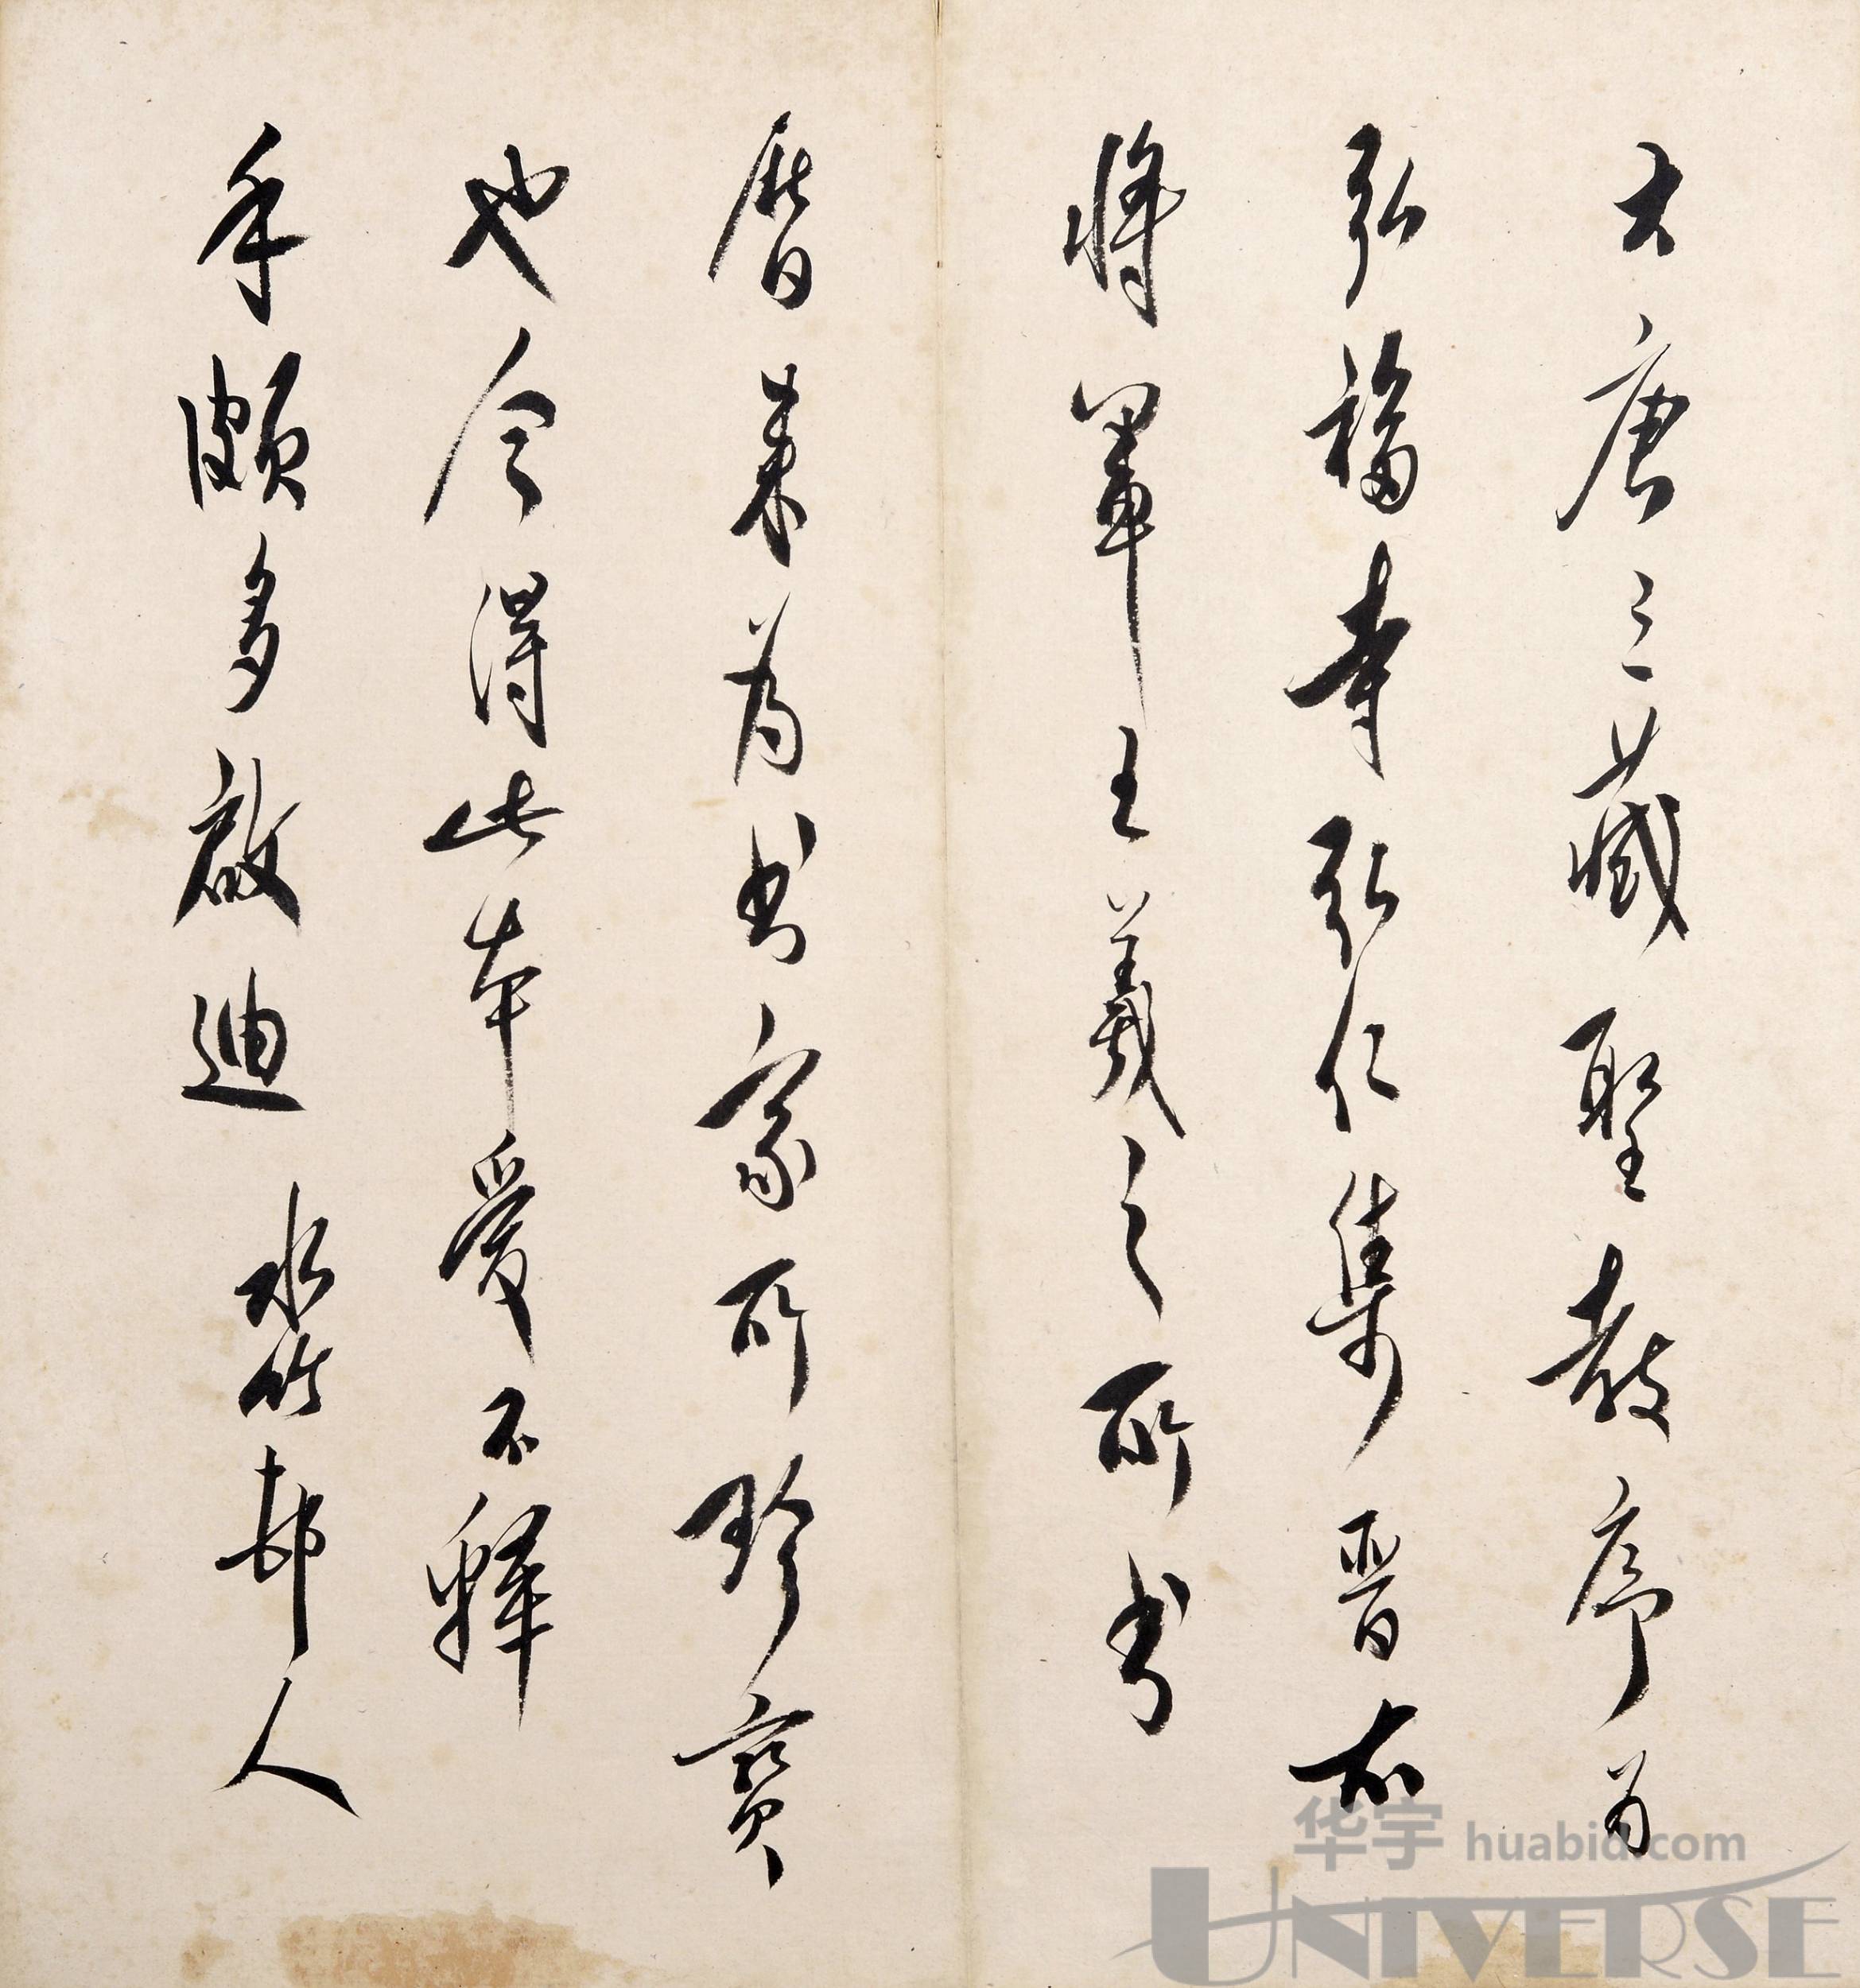 大唐三藏聖教序為
弘福寺弘仁集晉右
將軍王羲之所書
曆来為书家所珍寶
也今得此本愛不釋
手頗多啟迪 水竹邨人
华宇 huabid.com
UNIVERSE